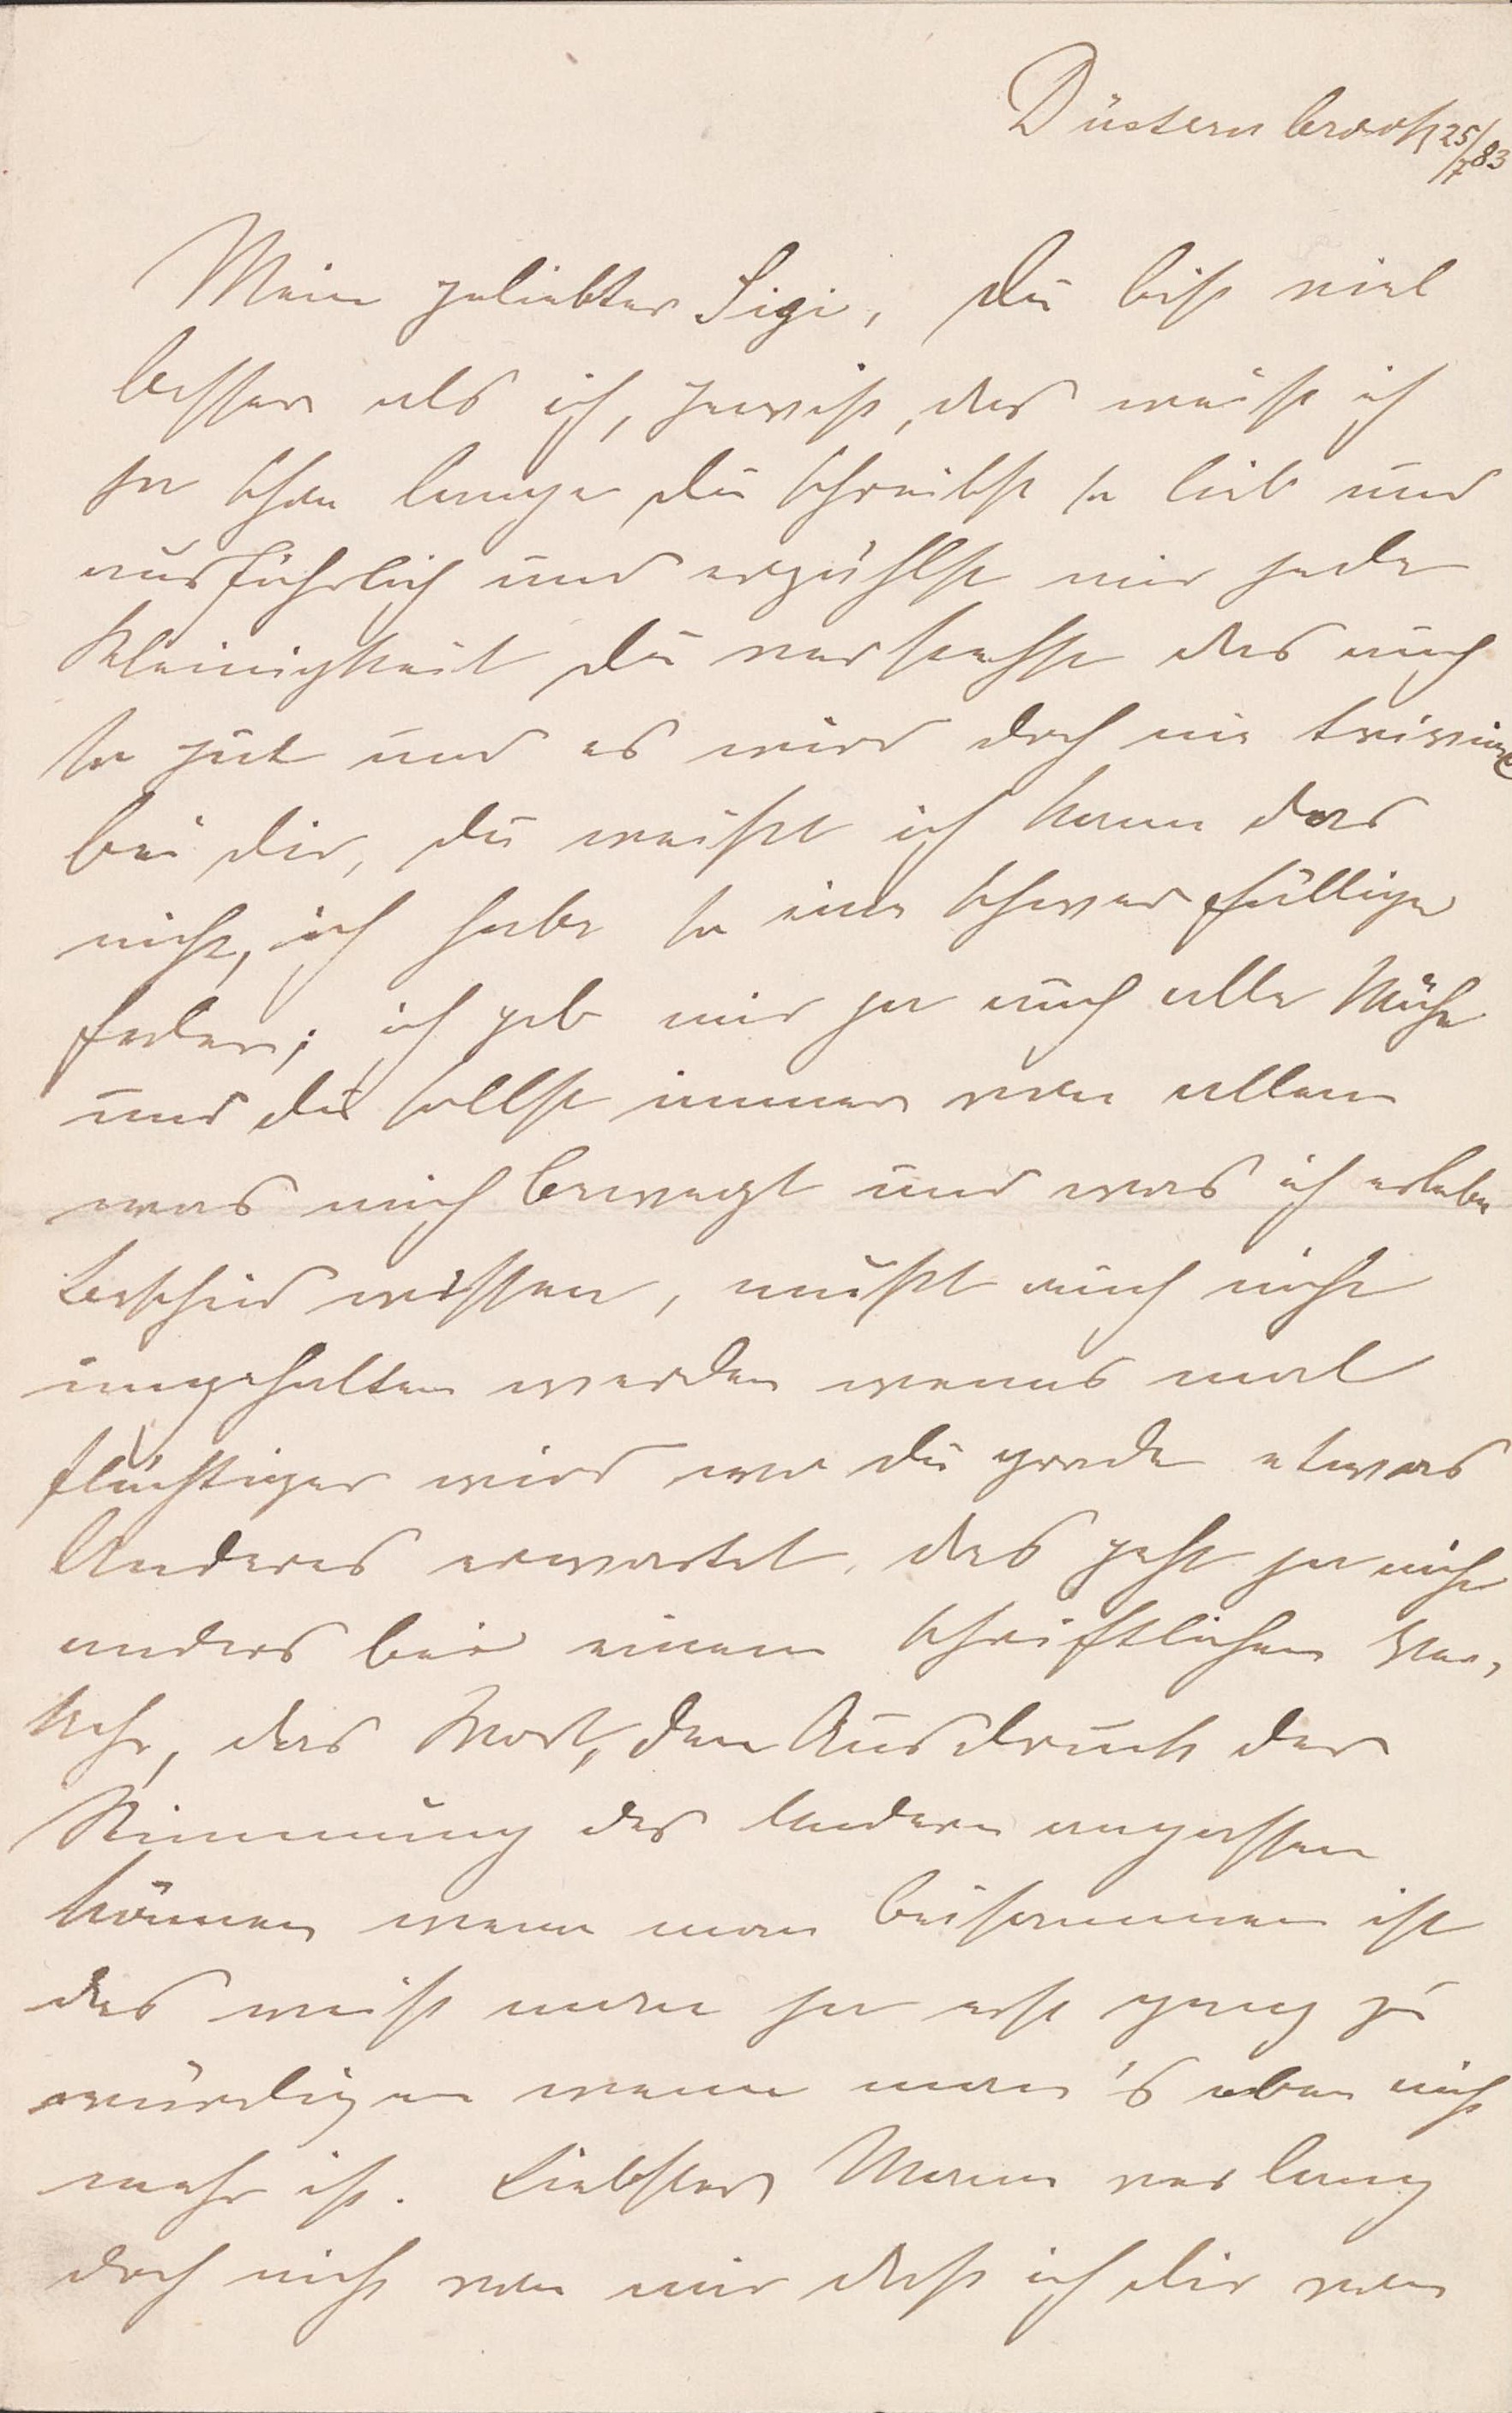 Düsternbrook 25/7 83
Mein geliebter Sigi, Du bist viel
besser als ich, gewiß, das weiß ich
ja schon lange Du schreibst so lieb und
ausführlich und erzählst mir jede
Kleinigkeit Du verstehst das auch
so gut und es wird doch nie trivial
bei Dir, Du weißt ich kann das
nicht, ich habe so eine schwerfällige
Feder; ich geb mir ja auch alle Mühe
und Du sollst immer von allem
was mich bewegt und was ich erlebe
Bescheid wissen, mußt auch nicht
ungehalten werden wenns mal
flüchtiger wird wo Du grade etwas
Anderes erwartet, das geht ja nicht
anders bei einem schriftlichen Ver-
kehr, das Wort, den Ausdruck der
Stimmung des Andern anpassen
können wenn man beisammen ist
das weiß man ja erst ganz zu
würdigen wenn man's eben nicht
mehr ist. Liebster Mann verlang
doch nicht von mir daß ich Dir von